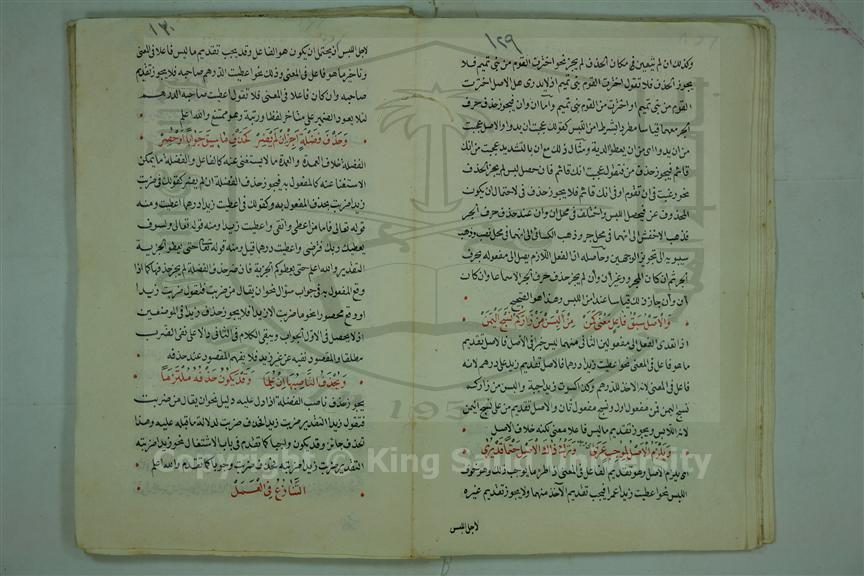 ١٢٩
وكذلك ان لم يتعين في مكان الحذف لم يجز نحو اخترت القوم من بني تميم فلا
يجوز الحذف فلا تقول اخترت القوم بني تميم اذ لا يدرى هل الاصل اخترت
القوم من بني تميم او اخترت من القوم بني تميم واما ان وان فيجوز حذف حرف
الجر معهما قياسا مطردا بشرط امن اللبس كقولك عجبت ان يدوا والاصل عجبت
من ان يدوا اى من ان يعطوا الدية ومثال ذلك مع ان بالتشديد عجبت من انك
قائم فيجوز حذف من فتقول عجبت انك قائم فان حصل لبس لم يجز الحذف
نحو رغبت في ان تقوم او في انك قائم فلا يجوز حذف في لاحتمال ان يكون
المحذوف عن فيحصل اللبس واختلف في محل ان وان عند حذف حرف الجر
فذهب الاخفش الى انهما في محل جر وذهب الكسائي الى انهما في محل نصب وذهب
سيبويه الى تجويز الوجهين وحاصله ان الفعل اللازم يصل الى مفعوله بحرف
الجر ثم ان كان المجرور غير ان وان لم يجز حذف حرف الجر الا سماعا وان كان
ان وان جاز ذلك قياسا عند امن اللبس وهذا هو الصحيح
والاصل سبق فاعل معنى كمن من البسن من زاركم نسج اليمن
اذا تعدى الفعل الى مفعولين الثاني منهما ليس خبرا في الاصل فالاصل تقديم
ما هو فاعل في المعنى نحو اعطيت زيدا درهما فالاصل تقديم زيد على درهم لانه
فاعل في المعنى لانه الآخذ للدرهم وكذا كسوت زيدا جبة والبسن من زاركم
نسج اليمن فمن مفعول اول ونسج مفعول ثان والاصل تقديم من على نسج اليمن
لانه اللابس ويجوز تقديم ما ليس فاعلا معنى لكنه خلاف الاصل
ويلزم الاصل لموجب عرى وترك ذاك الاصل حتما قد يرى
اى يلزم الاصل وهو تقديم الفاعل في المعنى اذا طرا ما يوجب ذلك وهو خوف
اللبس نحو اعطيت زيدا عمرا فيجب تقديم الآخذ منهما ولا يجوز تقديم غيره
لاجل اللبس
١٣٠
لاجل اللبس اذ يحتمل ان يكون هو الفاعل وقد يجب تقديم ما ليس فاعلا في المعنى
وتاخير ما هو فاعل في المعنى وذلك نحو اعطيت الدرهم صاحبه فلا يجوز تقديم
صاحبه وان كان فاعلا في المعنى فلا تقول اعطيت صاحبه الدرهم
لئلا يعود الضمير على متاخر لفظا ورتبة وهو ممتنع والله اعلم
وحذف فضلة اجز ان لم يضر كحذف ما سيق جوابا او حصر
الفضلة خلاف العمدة والعمدة ما لا يستغنى عنه كالفاعل والفضلة ما يمكن
الاستغناء عنه كالمفعول به فيجوز حذف الفضلة ان لم يضر كقولك في ضربت
زيدا ضربت بحذف المفعول به وكقولك في اعطيت زيدا درهما اعطيت ومنه
قوله تعالى فاما من اعطى واتقى واعطيت زيدا ومنه قوله تعالى ولسوف
يعطيك ربك فترضى واعطيت درهما قيل ومنه قوله تعالى حتى يعطوا الجزية
التقدير والله اعلم حتى يعطوكم الجزية فان ضر حذف الفضلة لم يجز حذفها كما اذا
وقع المفعول به في جواب سؤال نحو ان يقال من ضربت فتقول ضربت زيدا
او وقع محصورا نحو ما ضربت الا زيدا فلا يجوز حذف زيد في الموضعين
اذ لا يحصل في الاول الجواب ويبقى الكلام في الثاني دالا على نفي الضرب
مطلقا والمقصود نفيه عن غير زيد فلا يفهم المقصود عند حذفه
ويحذف الناصبها ان علما وقد يكون حذفه ملتزما
يجوز حذف ناصب الفضلة اذا دل عليه دليل نحو ان يقال من ضربت
فتقول زيدا التقدير ضربت زيدا فحذف ضربت لدلالة ما قبله عليه وهذا
الحذف جائز وقد يكون واجبا كما تقدم في باب الاشتغال نحو زيدا ضربته
التقدير ضربت زيدا ضربته فحذف ضربت وجوبا كما تقدم والله اعلم
التنازع في العمل
Copyright © King Saud University
1957